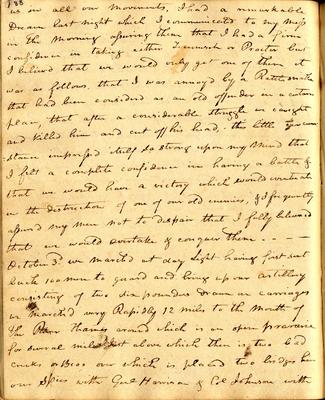 138
us in all our movements, I had a remarkable
Dream last night which I communicated to my Mess
in the Morning assuring them that I had a firm
confidence in taking either Tecumseh or Proctor but
I believed that we would only get one of them it
was as follows, that I was annoyed by a Rattlesnake
that had been considered as an old offender in a certain
place, that after a considerable struggle we caught
and killed him and cut off his head. this little circum
stance impressed itself so strong upon my Mind that
I felt a complete confidence in having a battle &
that we would have a victory which would eventuate
in the distruction of one of our old enemies, & I frequently
assured my Men not to despair that I fully believed
that we would overtake & conquer them. . — —
October 3d we marched at day light having first sent
back 100 men to guard and bring up our Artillery
consisting of two six pounders drawn on carriages
we marched very Rapidly 12 miles to the Mouth of
The River Thames around which is an open prararie
for several miles just above which then is two bad
creeks or Bios over which is placed two bridges her
our Spies with Genl Harrison & Col Johnson with